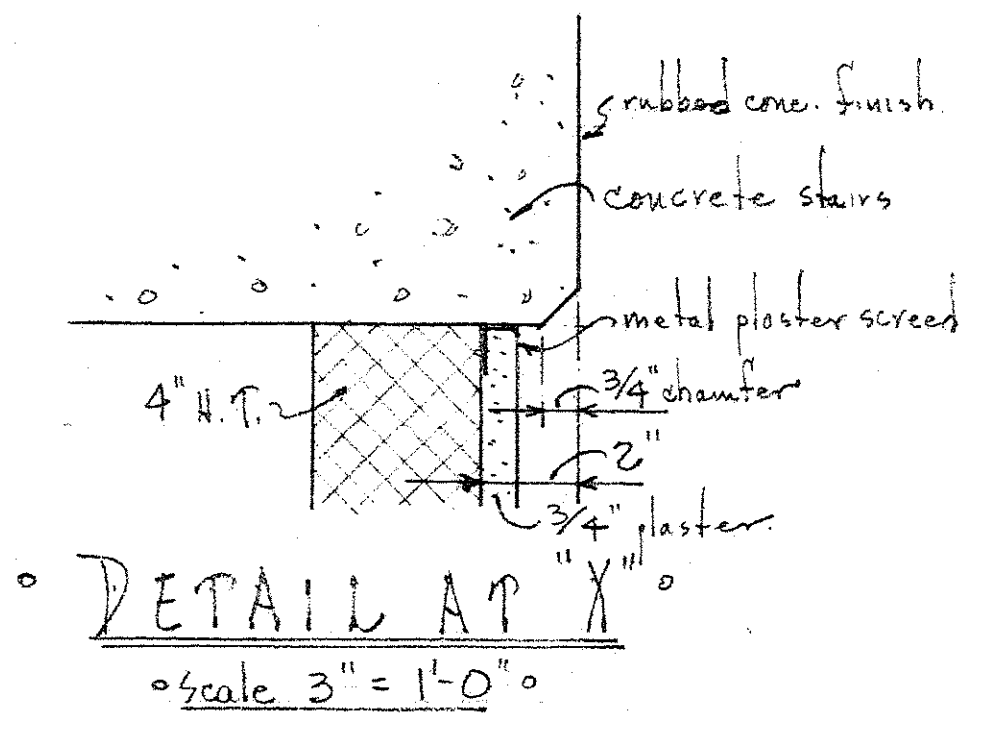 rubbed conc. finish
concrete stairs
metal plaster screed
4" H.T.
3/4" chamfer
2"
3/4" plaster.
DETAIL AT "X"
scale 3" = 1'-0"